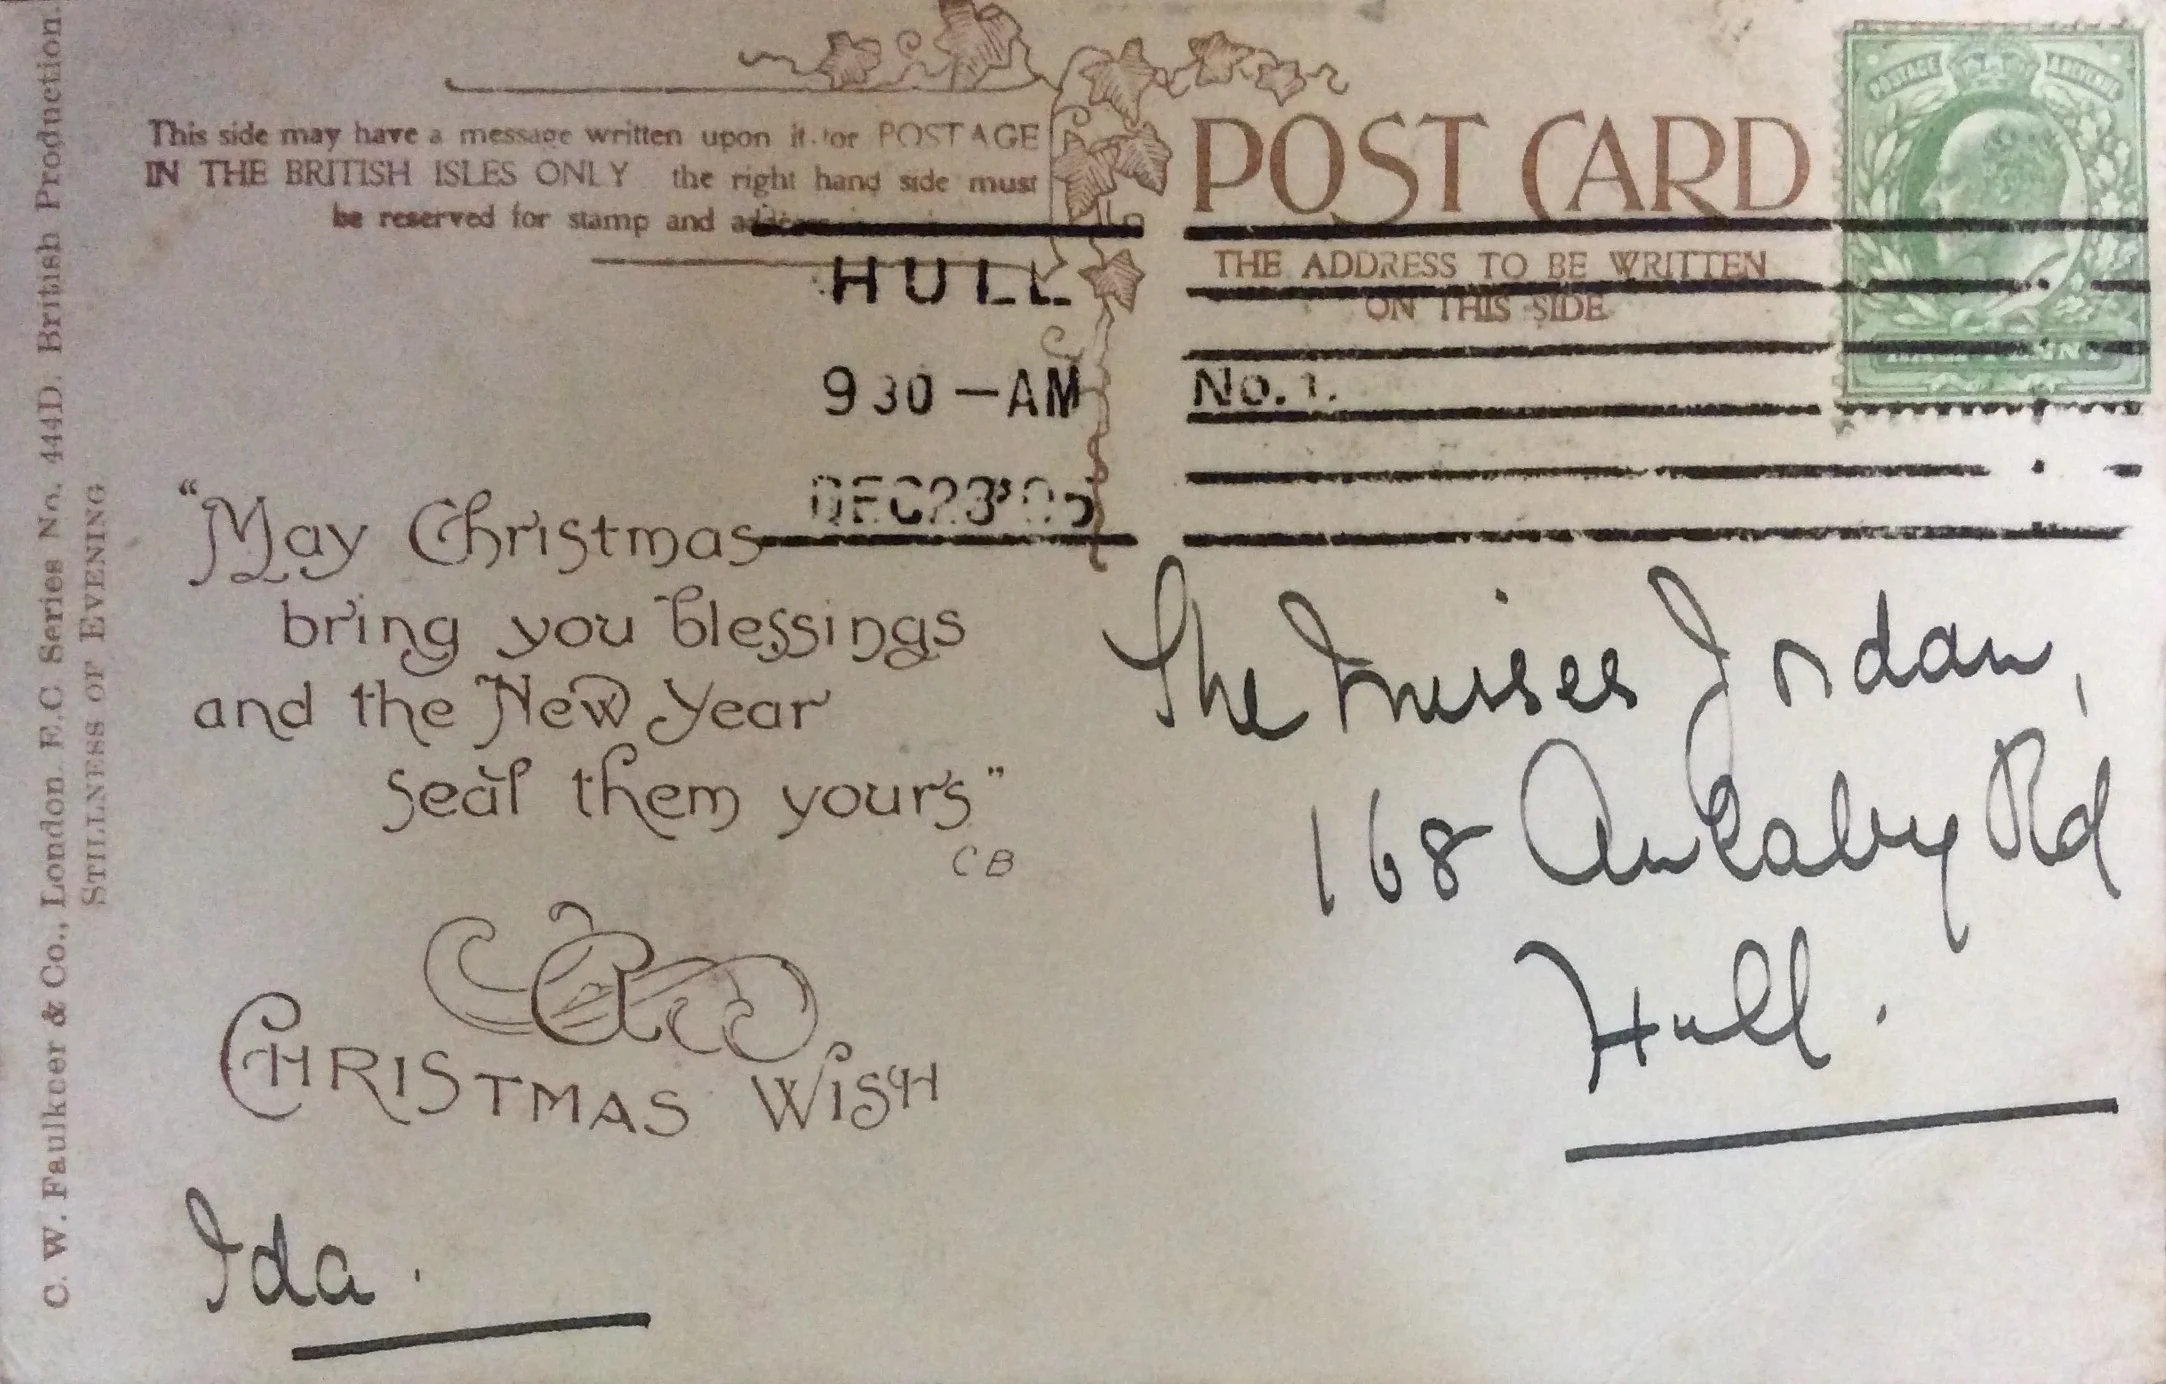 C. W. Faulkner & Co., London. E.C. Series No. 444D. British Production.
STILLNESS OF EVENING
This side may have a message written upon it for POSTAGE
IN THE BRITISH ISLES ONLY the right hand side must
be reserved for stamp and address
POST CARD
THE ADDRESS TO BE WRITTEN
ON THIS SIDE
POSTAGE REVENUE
HALF PENNY
HULL
9 30 - AM
No. 1.
DEC 23 '05
"May Christmas
bring you blessings
and the New Year
seal them yours"
C B
A
CHRISTMAS WISH
Ida.
The Misses Jordan,
168 Anlaby Rd
Hull.